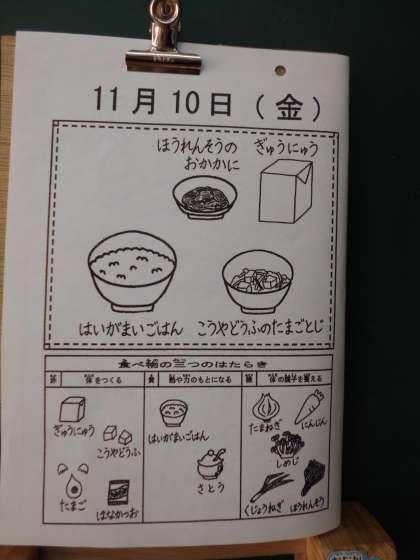 11月10日(金)
ほうれんそうの
おかかに
ぎゅうにゅう
はいがまいごはん
こうやどうふのたまごとじ
食べ物の三つのはたらき
赤 体をつくる
黄 熱や力のもとになる
緑 体の調子を整える
ぎゅうにゅう
こうやどうふ
たまご
はなかつお
はいがまいごはん
さとう
たまねぎ
にんじん
しめじ
くじょうねぎ
ほうれんそう